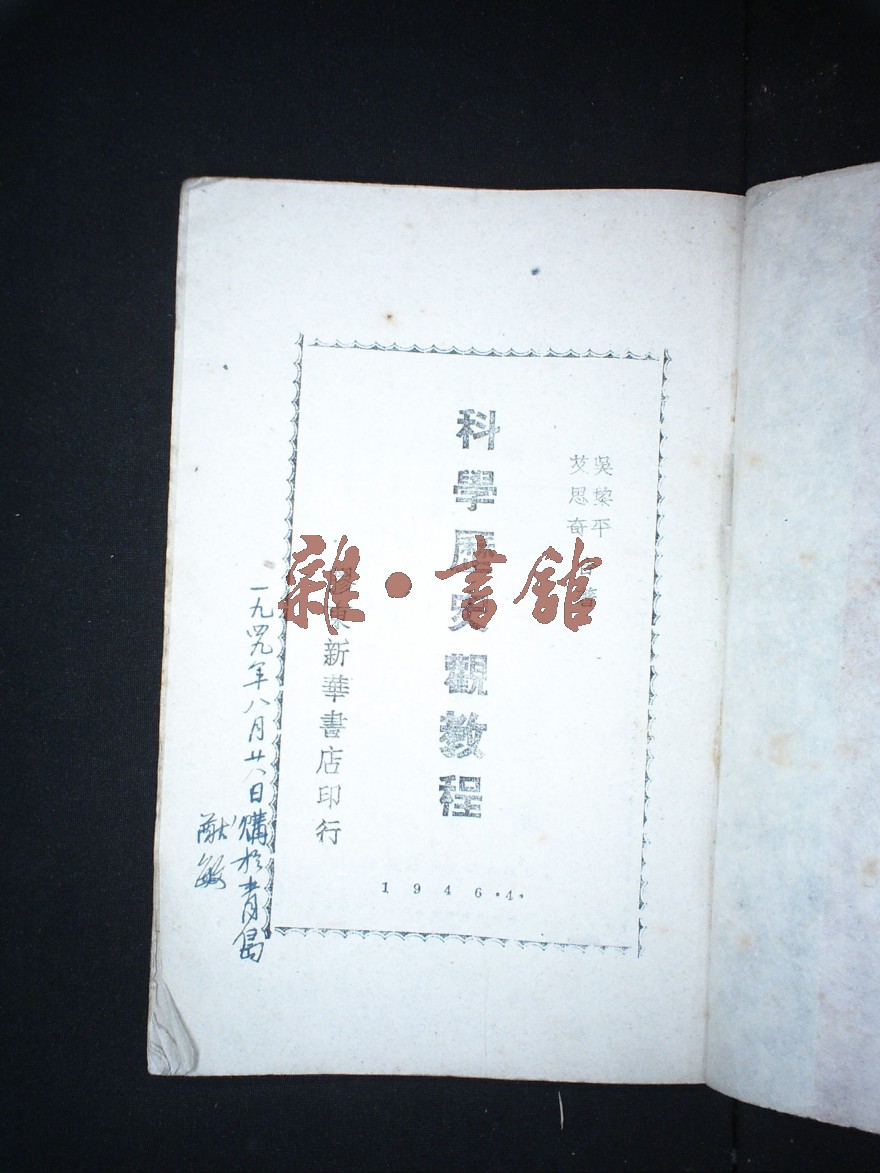 吳黎平
艾思奇
科學歷史觀教程
膠東新華書店印行
1946.4.
一九四九年八月廿八日購於青島
猷敏
雜·書館